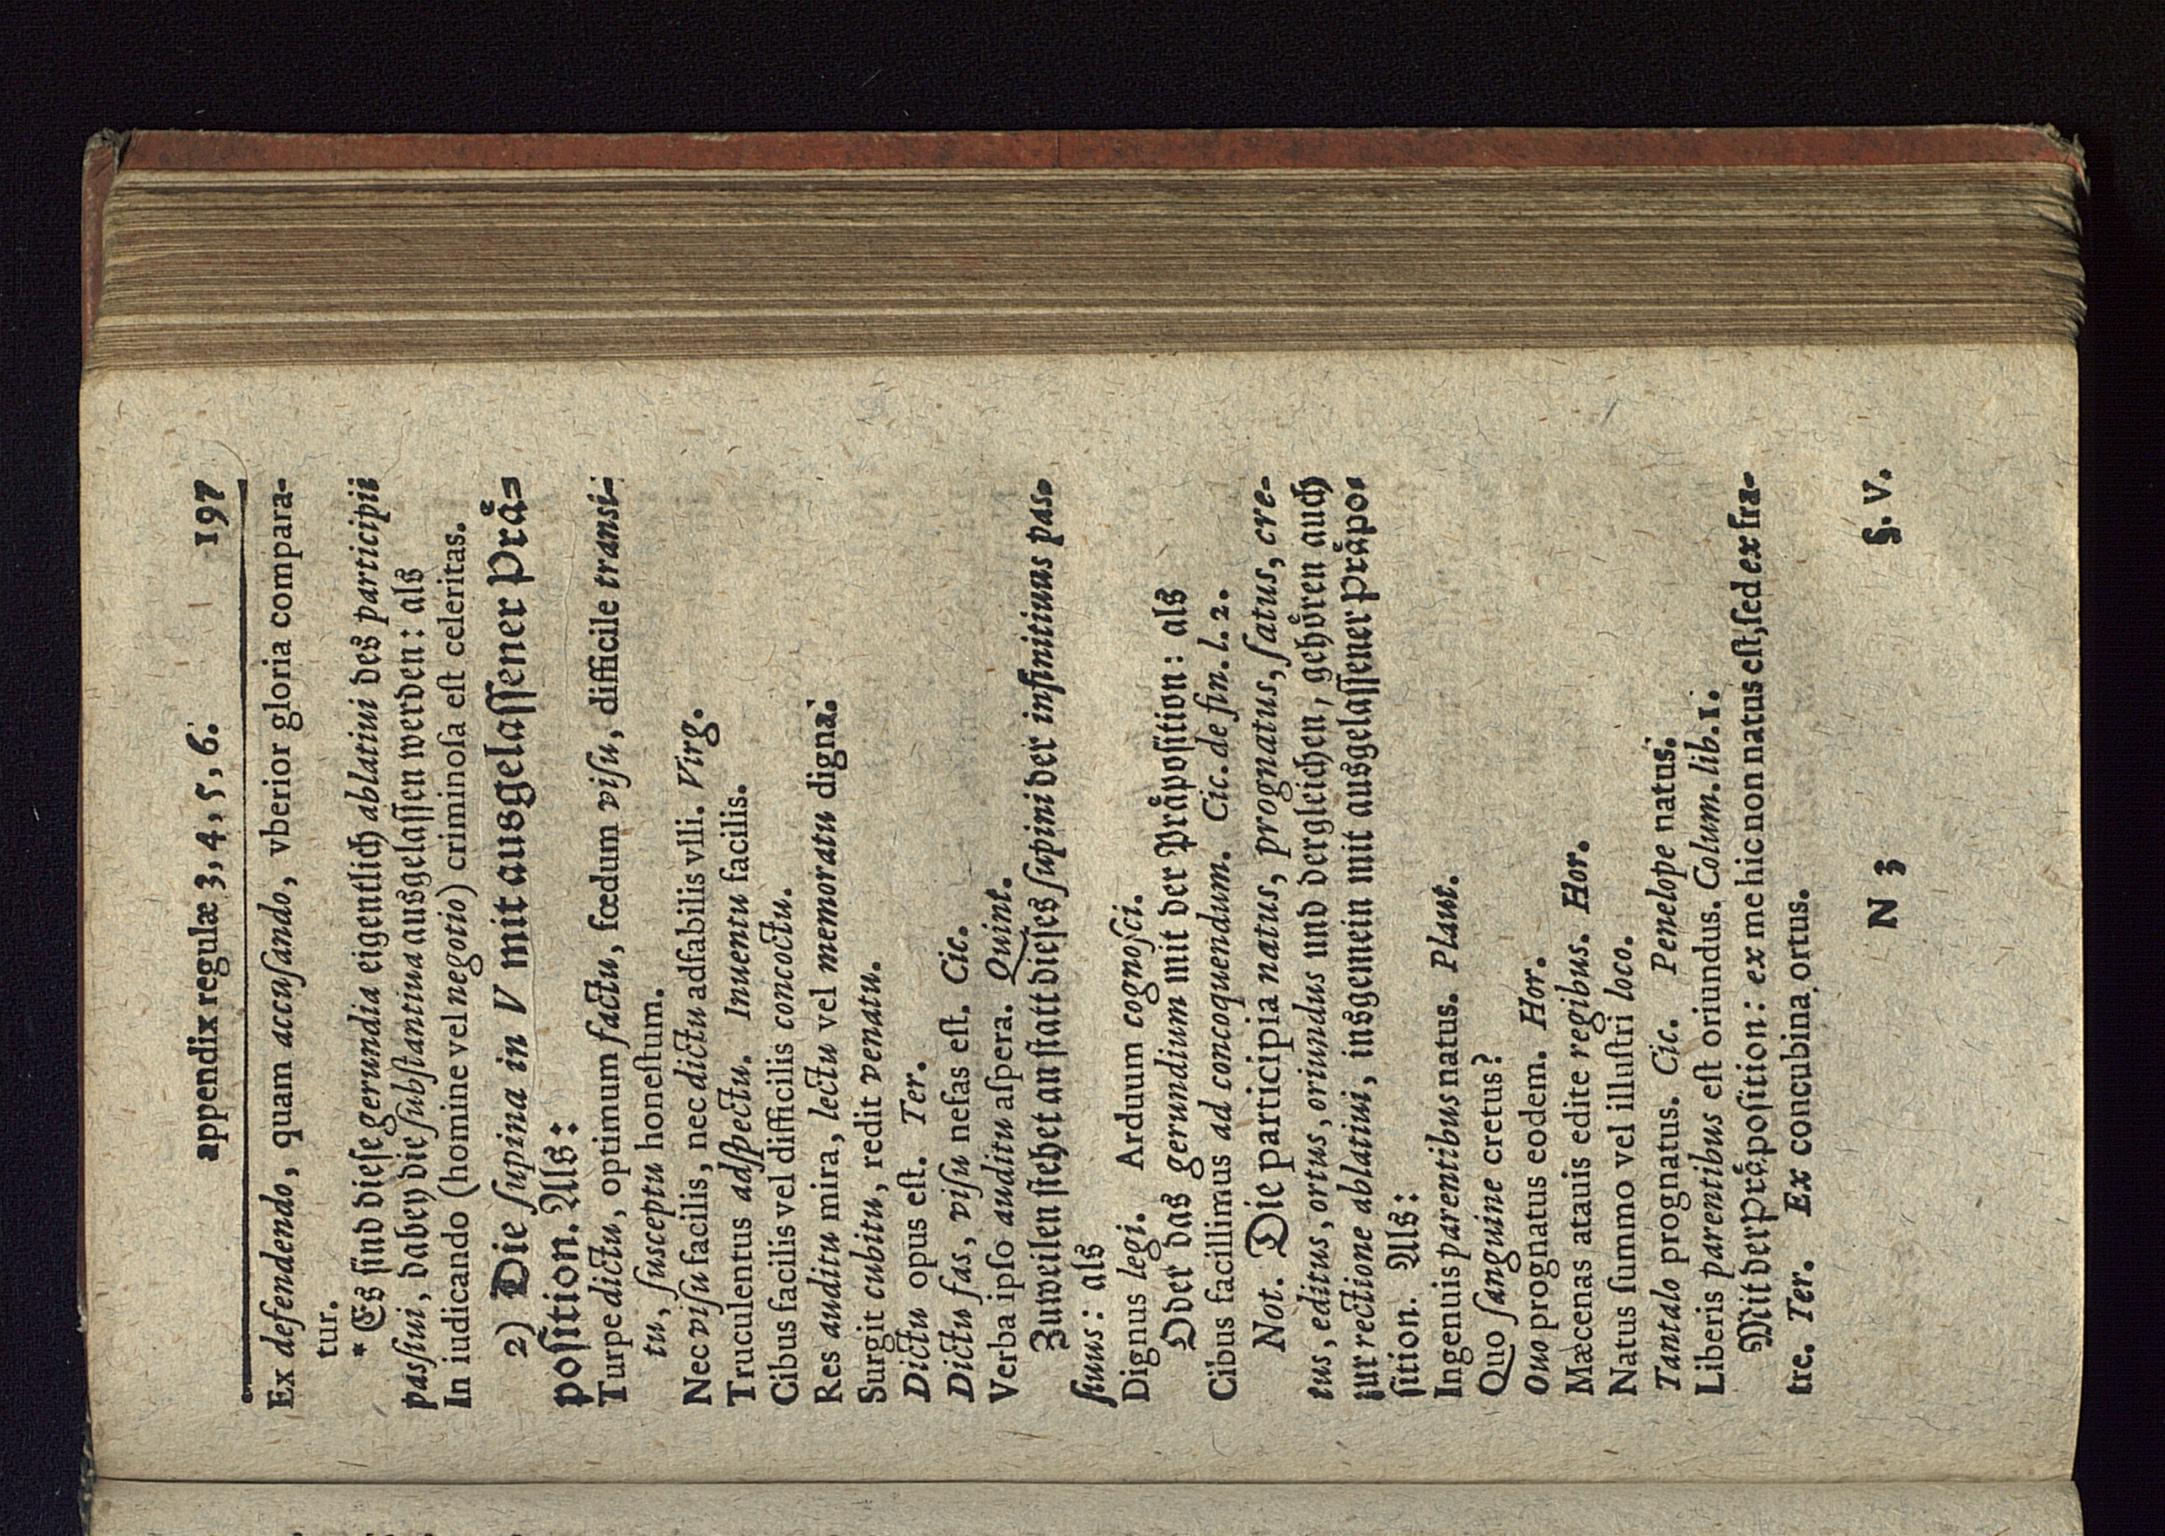 appendix regulæ 3, 4, 5, 6. 197
Ex defendendo, quam accuſando, vberior gloria compara-
tur.
* Es ſind dieſe gerundia eigentlich ablatiui des participii
paſſiui, dabey die ſubſtantiua ausgelaſſen werden: als
In iudicando (homine vel negotio) criminoſa eſt celeritas.
2) Die ſupina in V mit ausgelaſſener Praͤ-
poſition. Als:
Turpe dictu, optimum factu, fœdum viſu, difficile transi-
tu, ſusceptu honeſtum.
Nec viſu facilis, nec dictu adfabilis vlli. Virg.
Truculentus adſpectu. Inuentu facilis.
Cibus facilis vel difficilis concoctu.
Res auditu mira, lectu vel memoratu digna.
Surgit cubitu, redit venatu.
Dictu opus eſt. Ter.
Dictu fas, viſu nefas eſt. Cic.
Verba ipſo auditu aſpera. Quint.
Zuweilen ſtehet an ſtatt dieſes ſupini der infinitiuus pas-
ſiuus: als
Dignus legi. Arduum cognoſci.
Oder das gerundium mit der Praͤpoſition: als
Cibus facillimus ad concoquendum. Cic. de fin. l. 2.
Not. Die participia natus, prognatus, ſatus, cre-
tus, editus, ortus, oriundus und dergleichen, gehoͤren auch
zur rectione ablatiui, insgemein mit ausgelaſſener Praͤpo-
ſition. Als:
Ingenuis parentibus natus. Plaut.
Quo ſanguine cretus?
Ouo prognatus eodem. Hor.
Mæcenas atauis edite regibus. Hor.
Natus ſummo vel illuſtri loco.
Tantalo prognatus. Cic. Penelope natus.
Liberis parentibus eſt oriundus. Colum. lib. 1.
Mit der Praͤpoſition: ex me hic non natus eſt, ſed ex fra-
tre. Ter. Ex concubina ortus.
N 3 §. V.